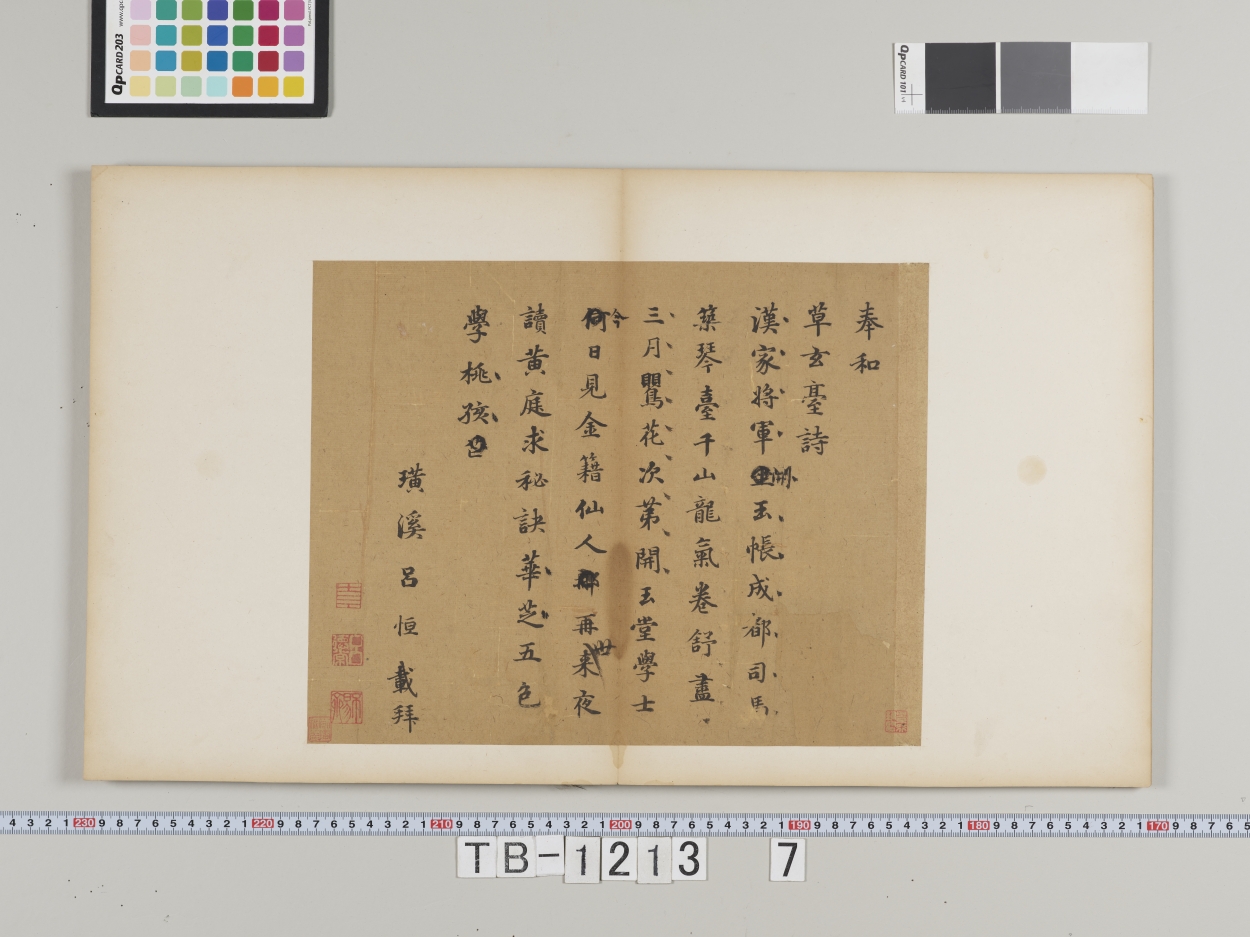 奉和
草玄臺詩
漢家將軍開玉帳成都司馬
築琴臺千山龍氣卷舒盡
三月鸎花次第開玉堂學士
今日見金籍仙人再世來夜
讀黃庭求秘訣華芝五色
學桃孩
璜溪呂恒載拜
QPCARD 203
QPCARD 101 v4
4 3 2 1 230 9 8 7 6 5 4 3 2 1 220 9 8 7 6 5 4 3 2 1 210 9 8 7 6 5 4 3 2 1 200 9 8 7 6 5 4 3 2 1 190 9 8 7 6 5 4 3 2 1 180 9 8 7 6 5 4 3 2 1 170 9 8 7 6 5
TB-1213 7